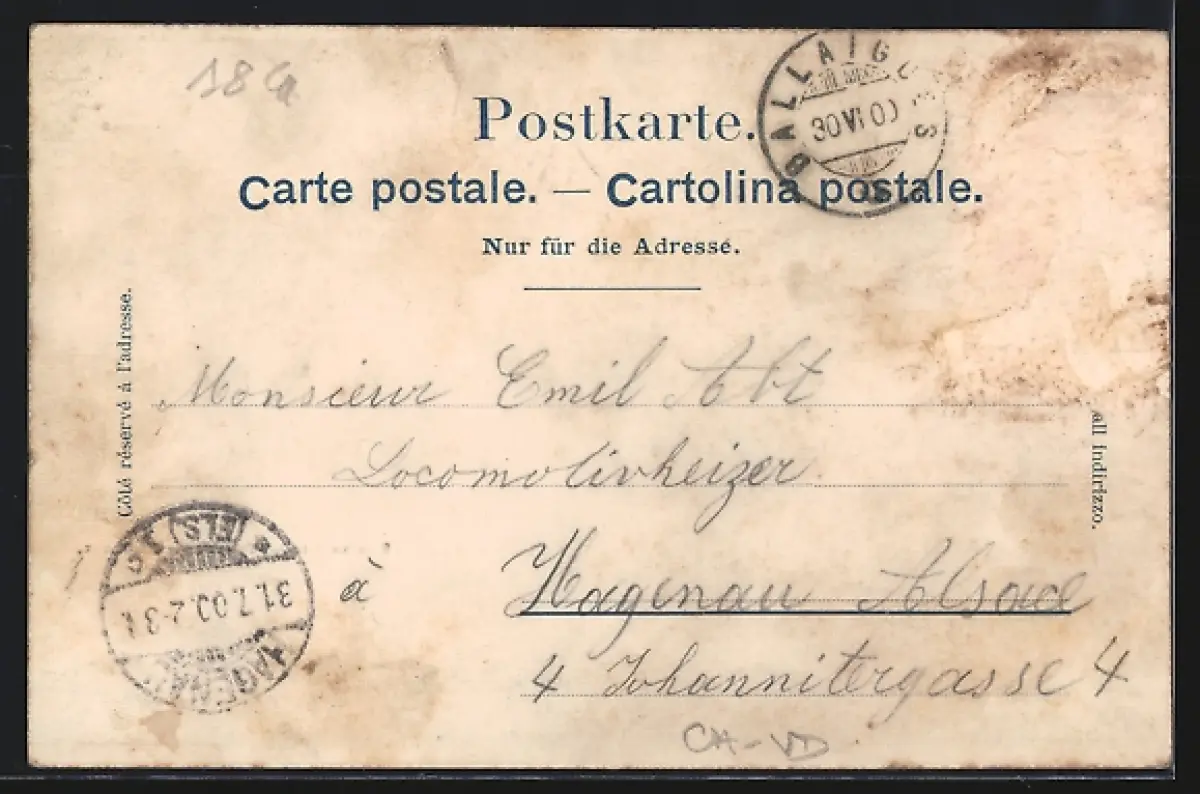 18 Ca
Postkarte.
BALLAIGUES
30 VI 00
Carte postale. — Cartolina postale.
Nur für die Adresse.
Côté réservé à l'adresse.
all indirizzo.
Monsieur Emil Abt
Locomotivheizer
à Hagenau Alsace
4 Johannitergasse 4
HAGENAU
31.7.00. 2-3
(ELS) 1 c
CH-VD